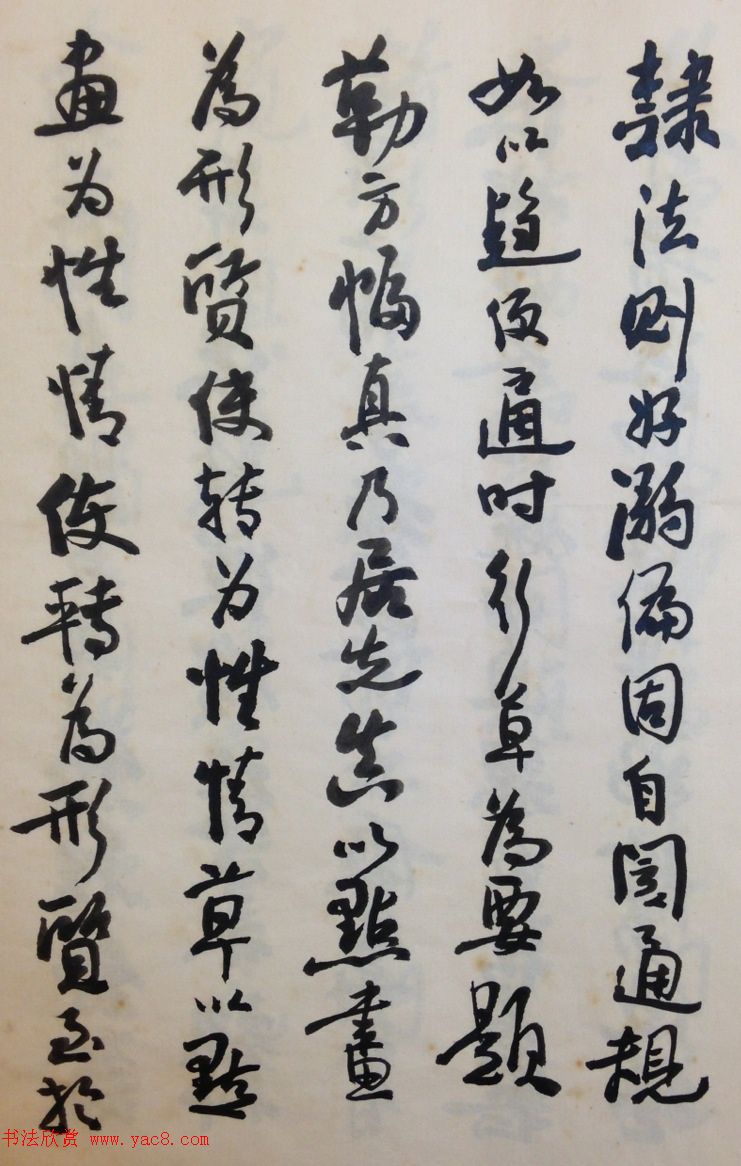 隸法则好溺偏固自閡通規
如以趨便適时行草為要題
勒方幅真乃居先真以點畫
為形質使转为性情草以點
畫为性情使轉為形質至於
书法欣赏 www.yac8.com